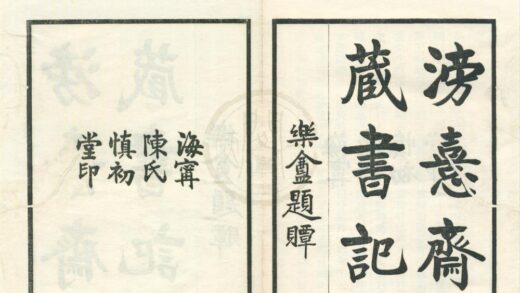 滂憙齋
藏書記
樂盦題贉
海甯
陳氏
慎初
堂印